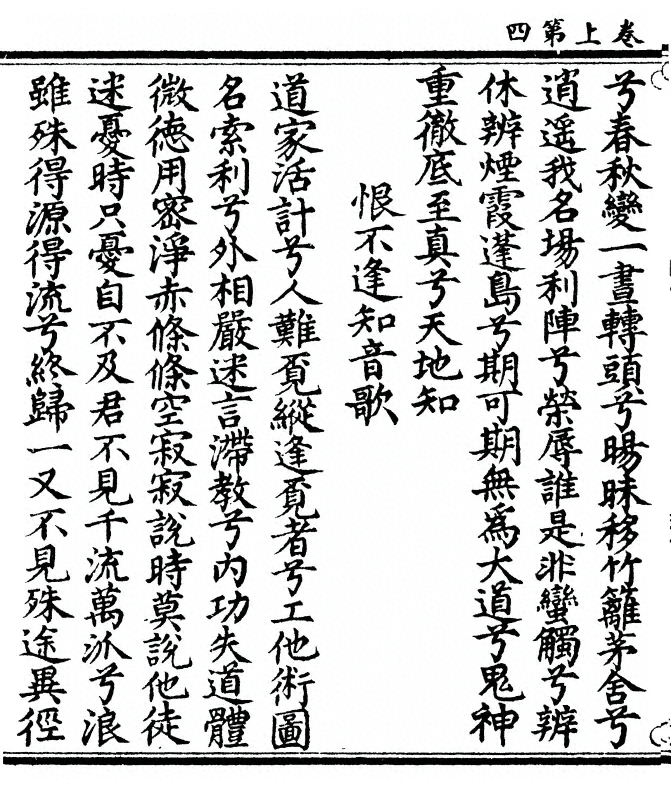 卷上第四
兮春秋變一晝轉頭兮暘昧移竹籬茅舍兮
逍遥我名場利陣兮榮辱誰是非蠻觸兮辨
休辨煙霞蓬島兮期可期無爲大道兮鬼神
重徹底至真兮天地知
恨不逢知音歌
道家活計兮人難覓縱逢覓者兮工他術圖
名索利兮外相嚴迷言滯教兮内功失道體
微德用密淨赤條條空寂寂說時莫說他徒
迷憂時只憂自不及君不見千流萬派兮浪
雖殊得源得流兮終歸一又不見殊途異徑